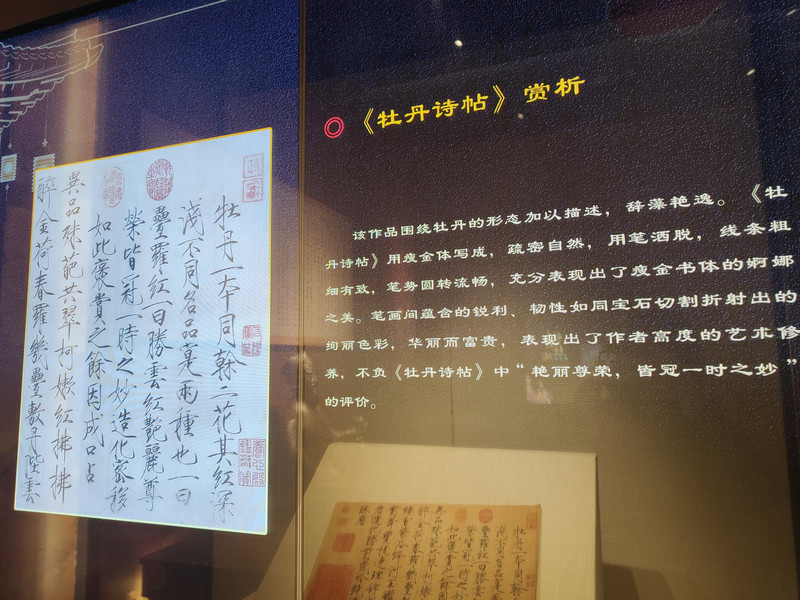 牡丹一本同榦二花其紅深
淺不同名品寔兩種也一曰
疊羅紅一曰勝雲紅艷麗尊
榮皆冠一時之妙造化密移
如此褒賞之餘因成口占
異品殊葩共翠柯嫩紅拂拂
醉金荷春羅幾疊敷丹陛雲
《牡丹诗帖》赏析
该作品围绕牡丹的形态加以描述，辞藻艳逸。《牡
丹诗帖》用瘦金体写成，疏密自然，用笔洒脱，线条粗
细有致，笔势圆转流畅，充分表现出了瘦金书体的婀娜
之美。笔画间蕴含的锐利、韧性如同宝石切割折射出的
绚丽色彩，华丽而富贵，表现出了作者高度的艺术修
养，不负《牡丹诗帖》中“艳丽尊荣，皆冠一时之妙”
的评价。